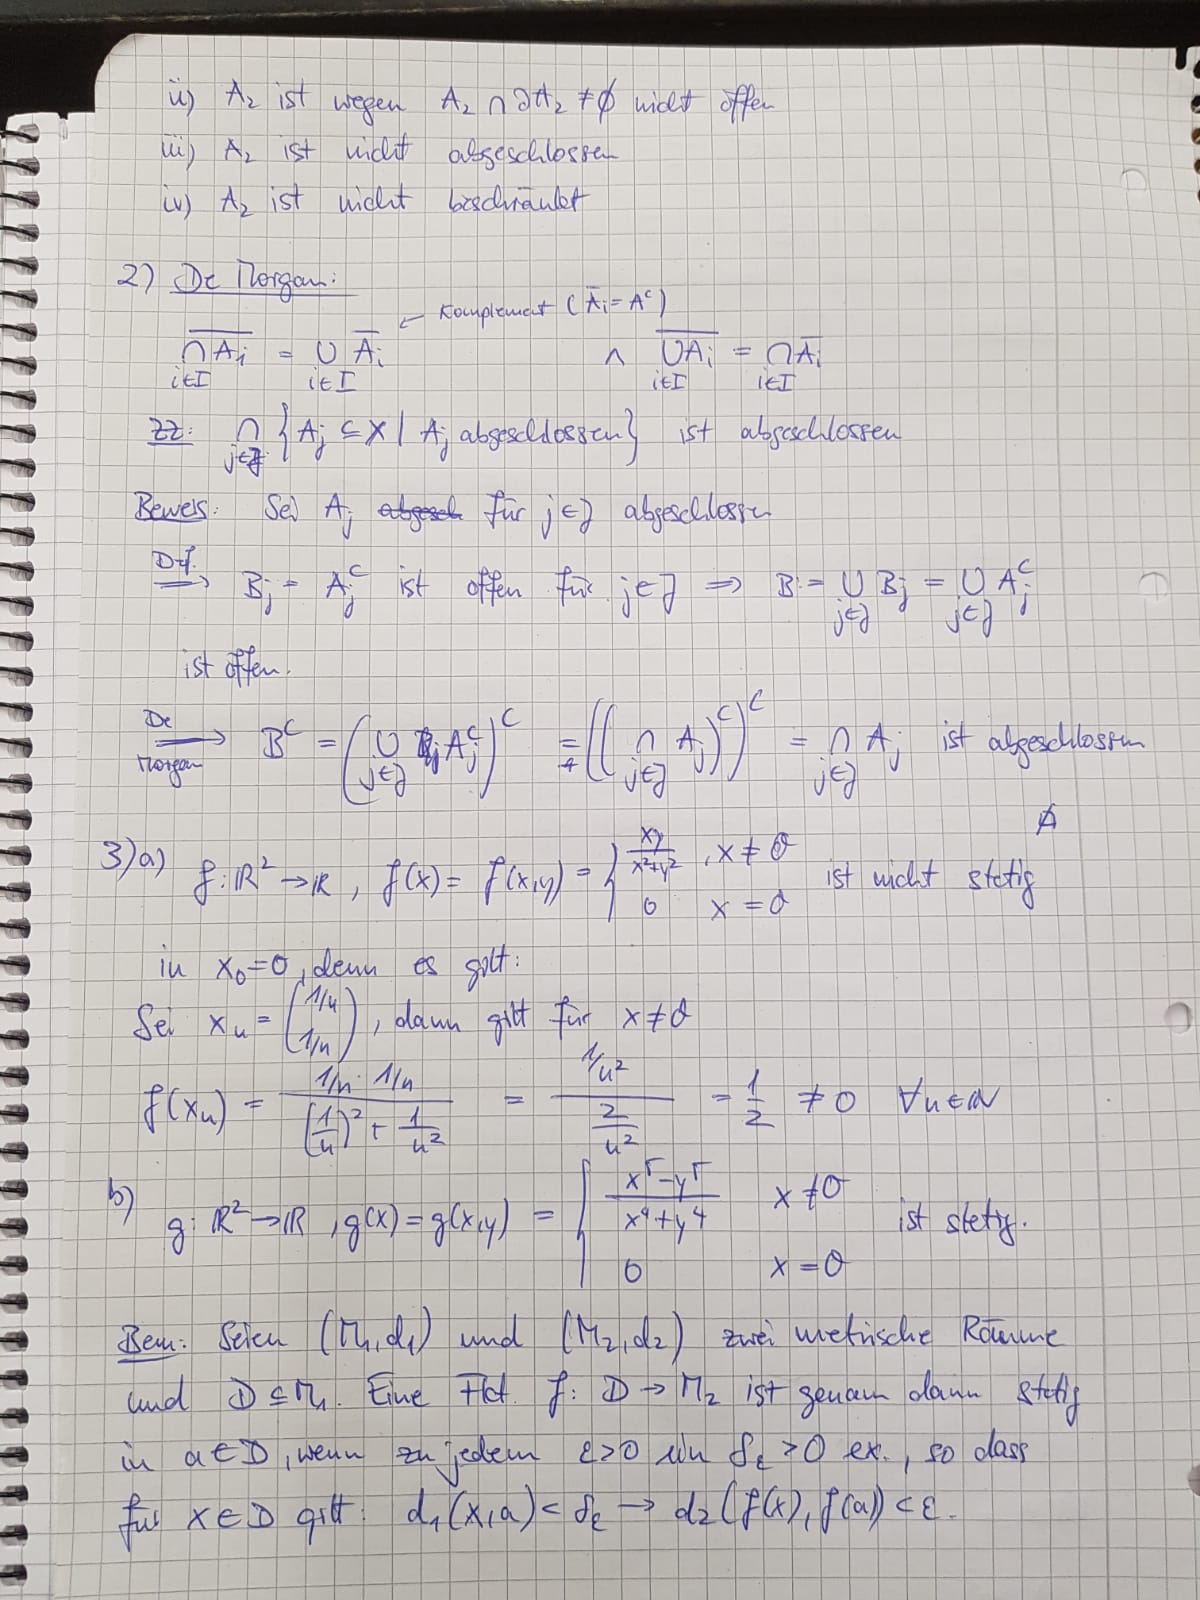 ii) A₂ ist wegen A₂ ∩ ∂A₂ ≠ ∅ nicht offen
iii) A₂ ist nicht abgeschlossen
iv) A₂ ist nicht beschränkt
2) De Morgan:
← Komplement (A̅ᵢ = Aᶜ)
\overline{⋂_{i∈I} Aᵢ} = ⋃_{i∈I} A̅ᵢ ∧ \overline{⋃_{i∈I} Aᵢ} = ⋂_{i∈I} A̅ᵢ
ZZ: ⋂_{j∈J} {A_j ⊆ X | A_j abgeschlossen} ist abgeschlossen
Beweis: Sei A_j abgesch für j∈J abgeschlossen
Def. ⟹ B_j = A_jᶜ ist offen für j∈J ⟹ B := ⋃_{j∈J} B_j = ⋃_{j∈J} A_jᶜ
ist offen.
De Morgan ⟹ Bᶜ = (⋃_{j∈J} A_jᶜ)ᶜ = ((⋂_{j∈J} A_j)ᶜ)ᶜ = ⋂_{j∈J} A_j ist abgeschlossen
3) a) f: ℝ² → ℝ, f(x) = f(x,y) = { xy/(x²+y²) , x ≠ 0 ; 0 x = 0 ist nicht stetig
in x₀ = 0, denn es gilt:
Sei xₙ = (1/n 1/n), dann gilt für x ≠ 0
f(xₙ) = (1/n · 1/n)/((1/n)² + 1/n²) = (1/n²)/(2/n²) = 1/2 ≠ 0 ∀n∈ℕ
b) g: ℝ² → ℝ, g(x) = g(x,y) = { (x⁵-y⁵)/(x⁴+y⁴) x ≠ 0 ; 0 x = 0 ist stetig.
Bem: Seien (M₁,d₁) und (M₂,d₂) zwei metrische Räume
und D ⊆ M₁. Eine Fkt. f: D → M₂ ist genau dann stetig
in a∈D, wenn zu jedem ε>0 ein δ_ε > 0 ex., so dass
für x∈D gilt: d₁(x,a) < δ_ε → d₂(f(x), f(a)) < ε.